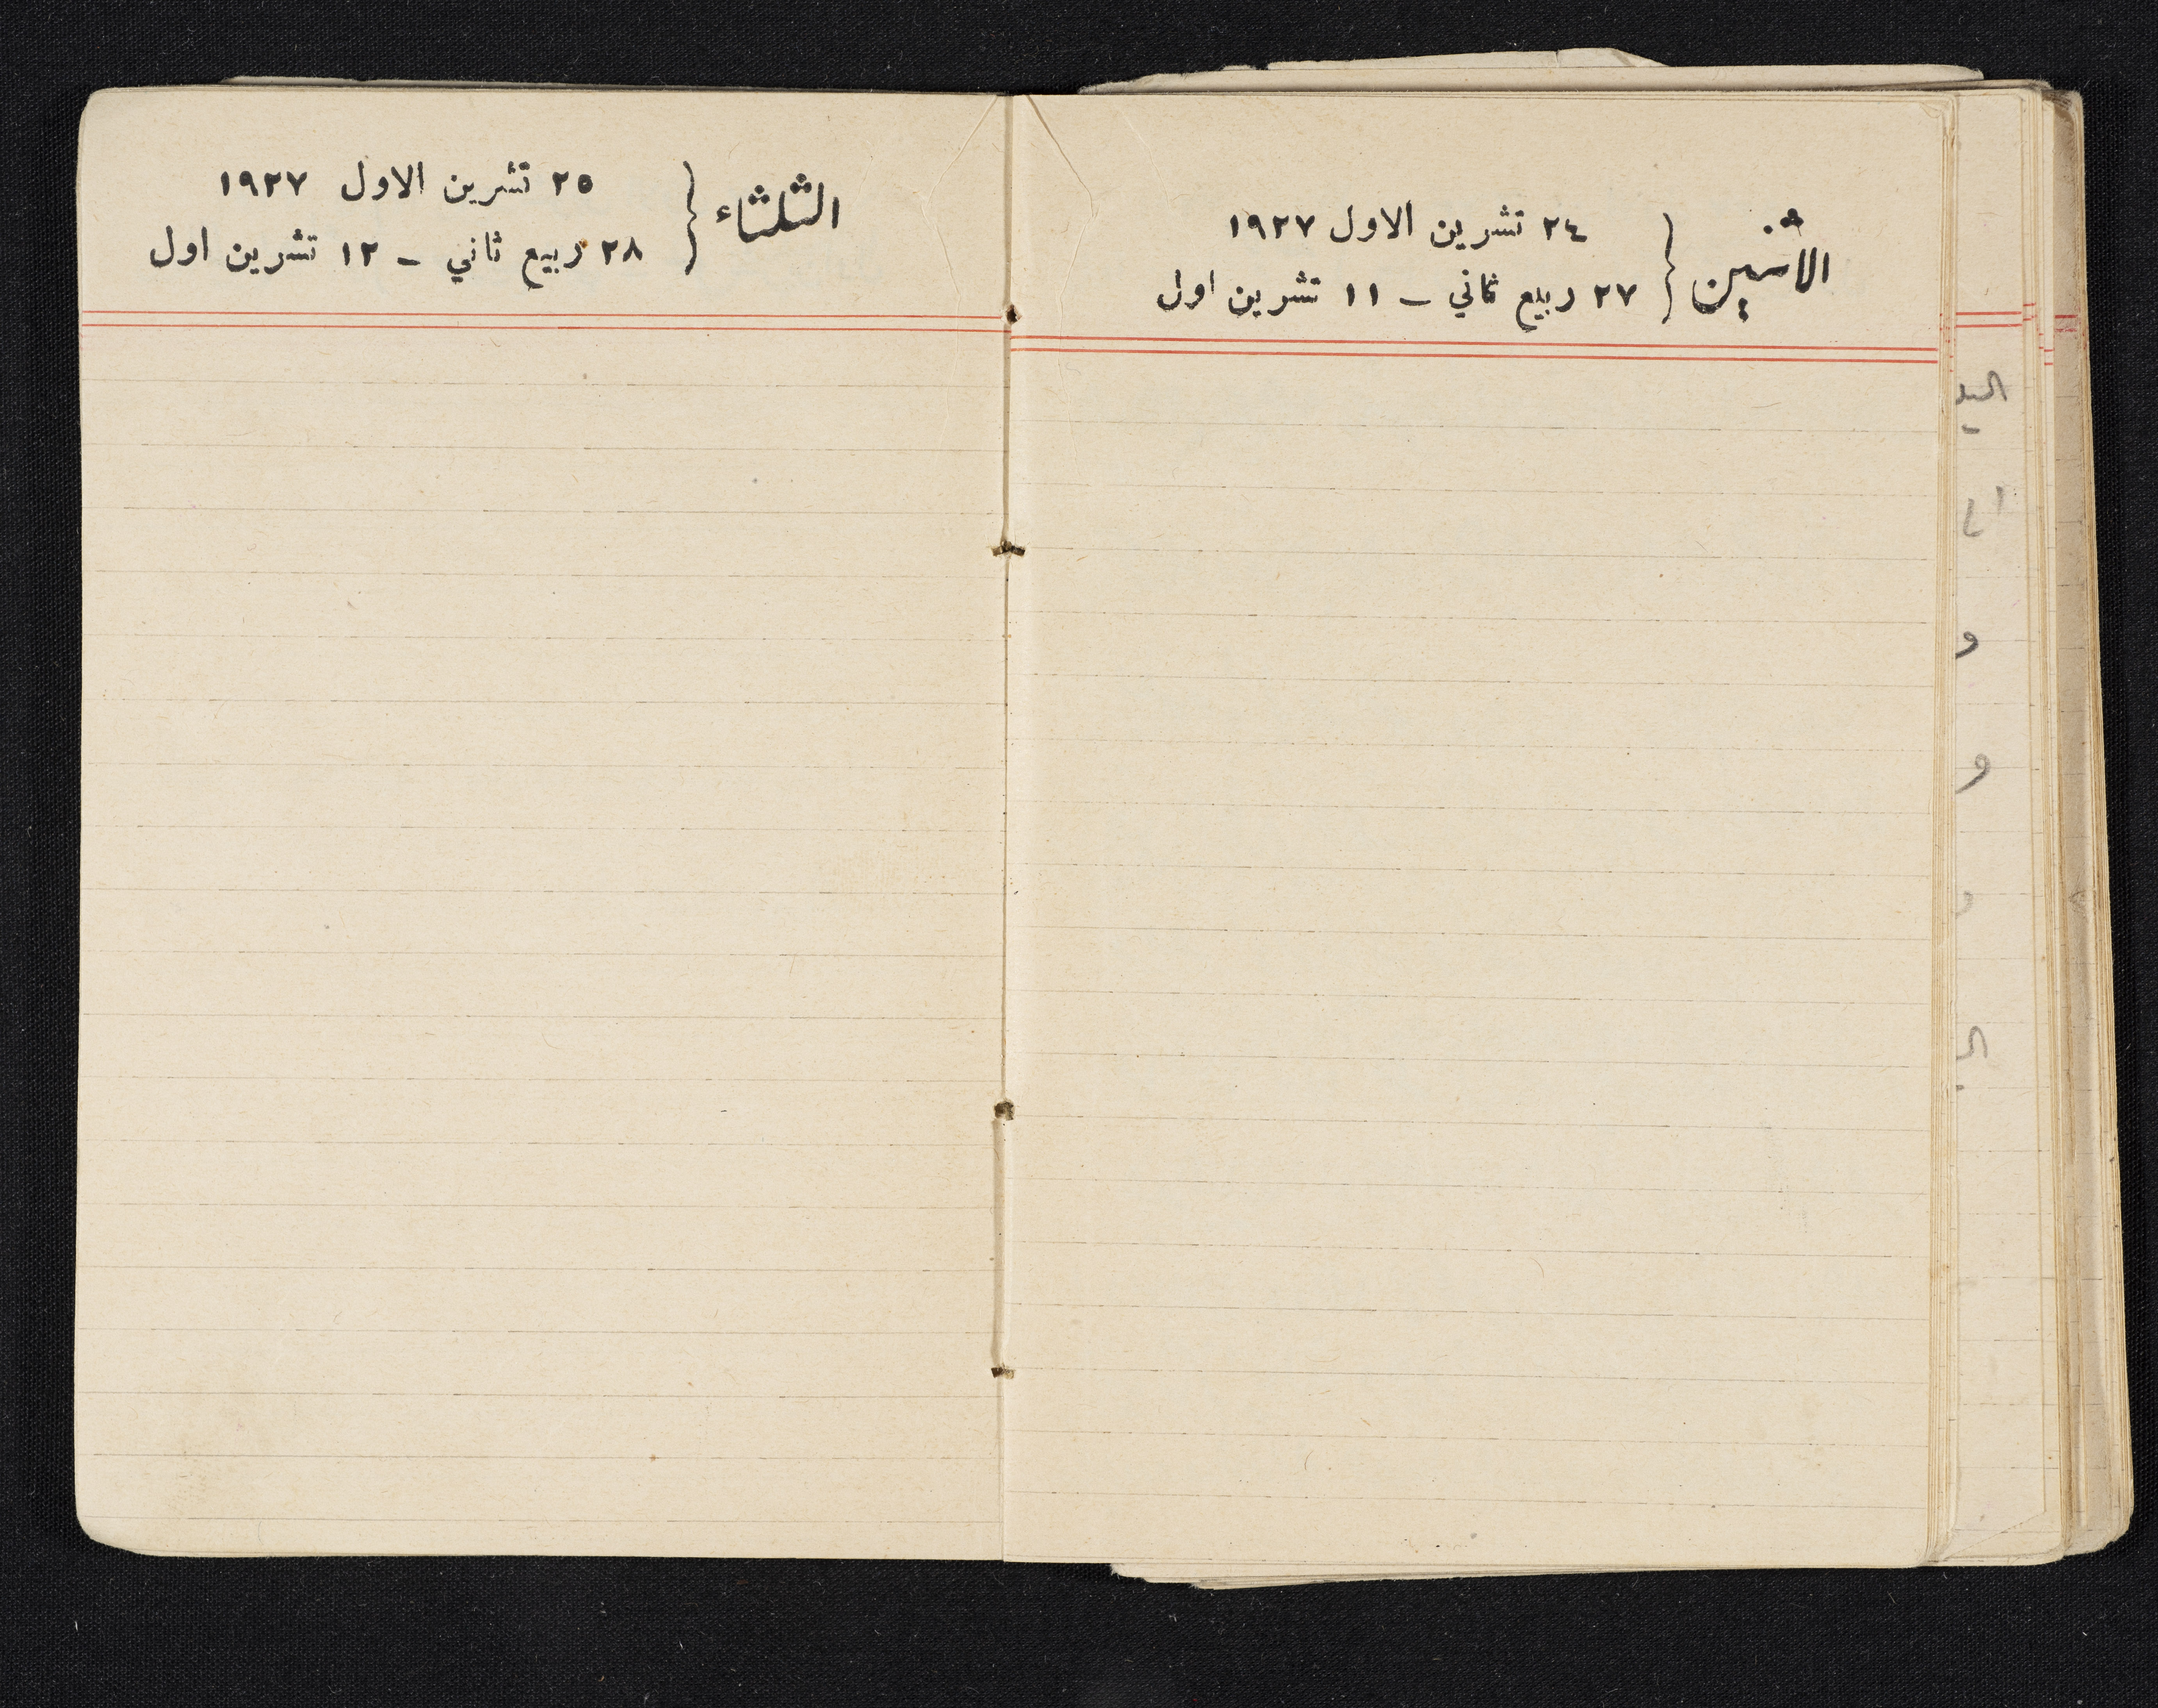 الاثنين
٢٤ تشرين الاول ١٩٢٧
٢٧ ربيع ثاني – ١١ تشرين اول
الثلثاء
٢٥ تشرين الاول ١٩٢٧
٢٨ ربيع ثاني – ١٢ تشرين اول